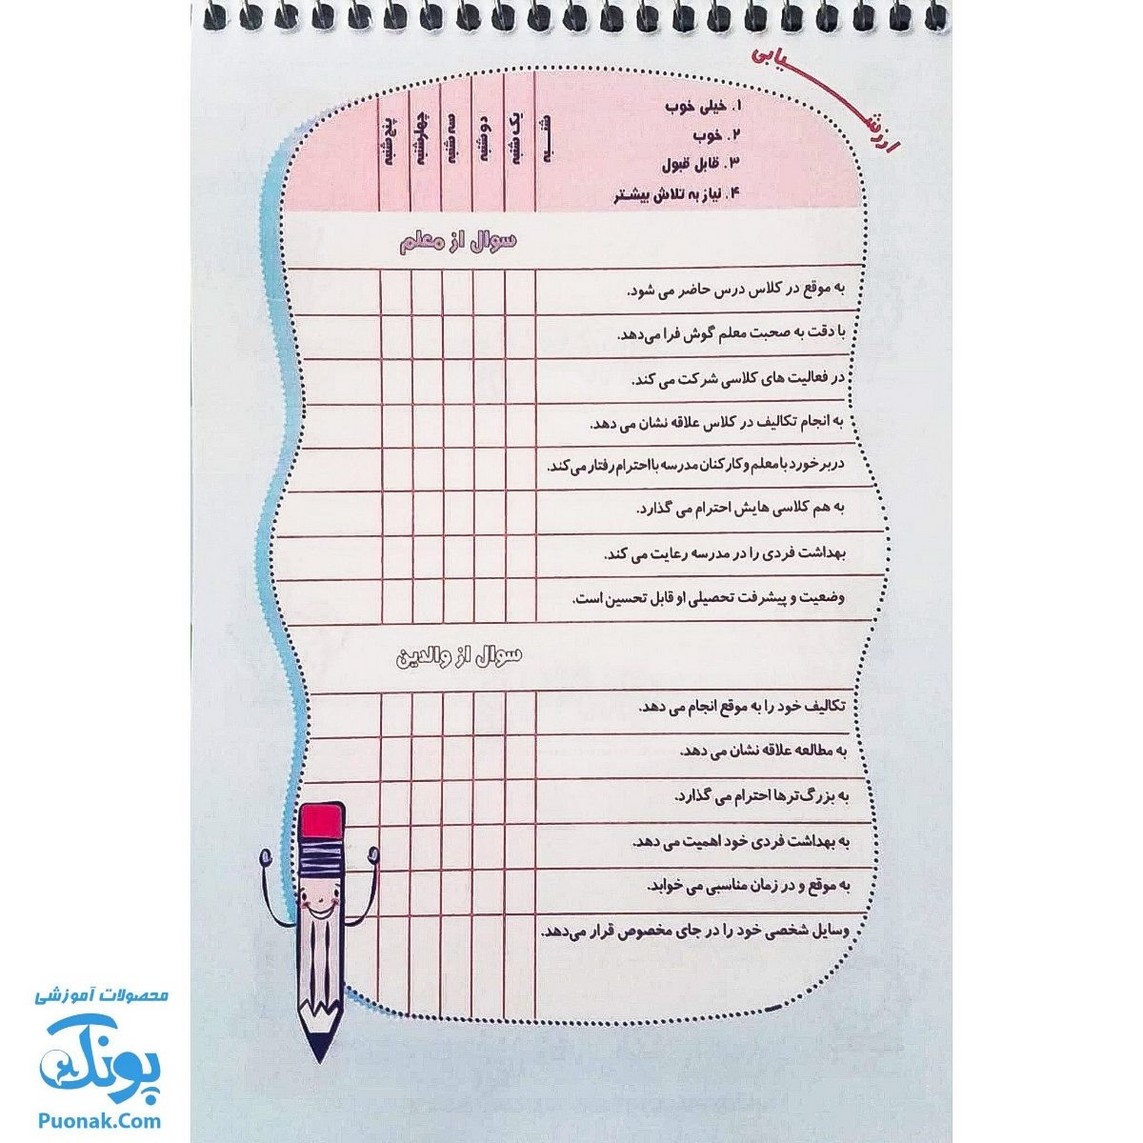 ارزشیابی
۱. خیلی خوب
۲. خوب
۳. قابل قبول
۴. نیاز به تلاش بیشتر
شنبه
یک شنبه
دو شنبه
سه شنبه
چهارشنبه
پنج شنبه
سوال از معلم
به موقع در کلاس درس حاضر می شود.
با دقت به صحبت معلم گوش فرا می‌دهد.
در فعالیت های کلاسی شرکت می کند.
به انجام تکالیف در کلاس علاقه نشان می دهد.
در برخورد با معلم و کارکنان مدرسه با احترام رفتار می‌کند.
به هم کلاسی هایش احترام می گذارد.
بهداشت فردی را در مدرسه رعایت می کند.
وضعیت و پیشرفت تحصیلی او قابل تحسین است.
سوال از والدین
تکالیف خود را به موقع انجام می دهد.
به مطالعه علاقه نشان می دهد.
به بزرگ‌ترها احترام می گذارد.
به بهداشت فردی خود اهمیت می دهد.
به موقع و در زمان مناسبی می خوابد.
وسایل شخصی خود را در جای مخصوص قرار می‌دهد.
محصولات آموزشی
پونک
Puonak.Com